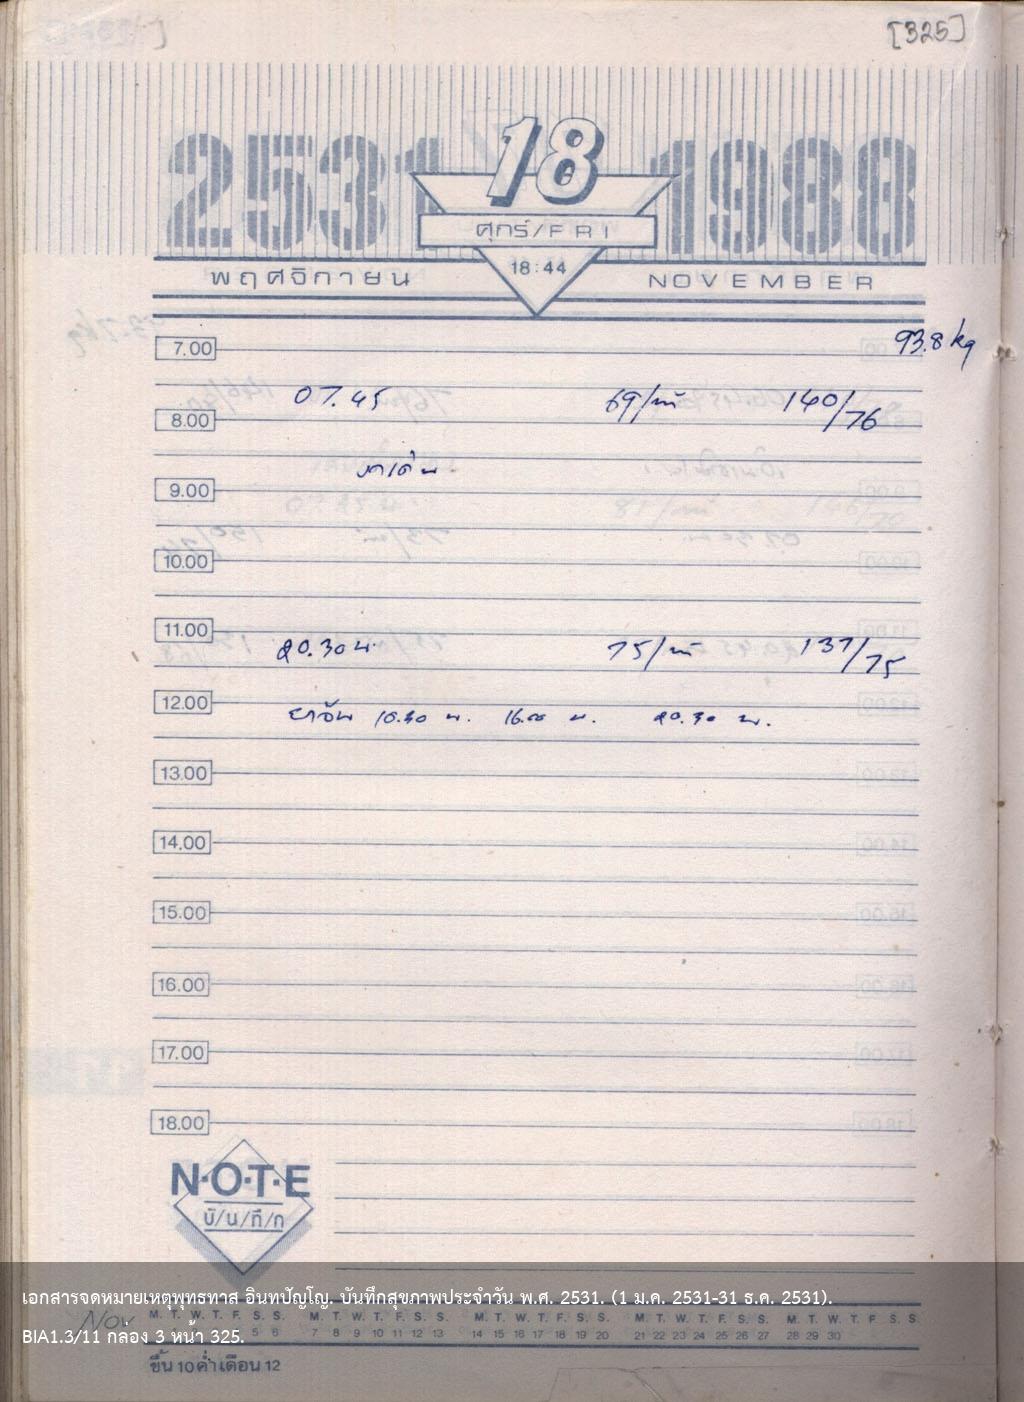 [325]
2531 18 1988
ศุกร์/FRI
18:44
พฤศจิกายน NOVEMBER
93.8 kg
7.00
07.45 69/นาที 140/76
8.00
9.00
10.00
11.00
20.30 น. 75/นาที 137/75
12.00
น. 16.00 น. 20.30 น.
13.00
14.00
15.00
16.00
17.00
18.00
N·O·T·E
บั/น/ทึ/ก
เอกสารจดหมายเหตุพุทธทาส อินทปัญโญ. บันทึกสุขภาพประจำวัน พ.ศ. 2531. (1 ม.ค. 2531-31 ธ.ค. 2531).
Nov M. T. W. T. F. S. S. M. T. W. T. F. S. S. M. T. W. T. F. S. S. M. T. W. T. F. S. S. M. T. W. T. F. S. S.
5 6 7 8 9 10 11 12 13 14 15 16 17 18 19 20 21 22 23 24 25 26 27 28 29 30
BIA1.3/11 กล่อง 3 หน้า 325.
ขึ้น 10 ค่ำ เดือน 12